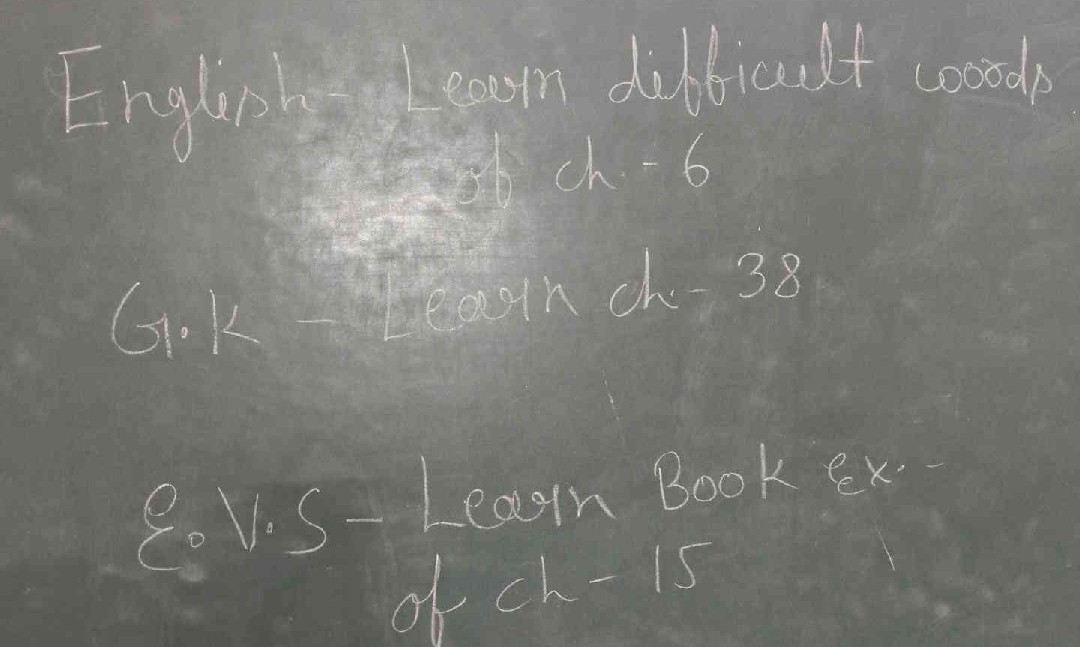 English - Learn difficult words
of ch. - 6
G.K - Learn ch. - 38
E.V.S - Learn Book Ex. -
of ch - 15